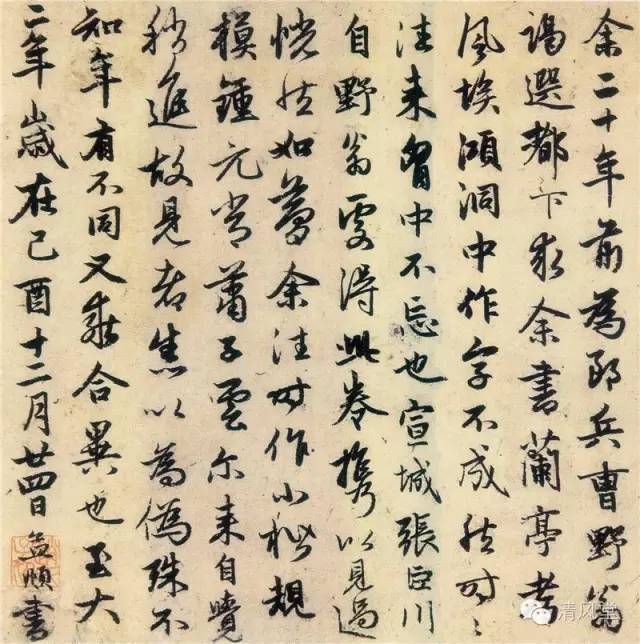 余二十年前為郎兵曹野翁
謁選都下求余書蘭亭考
風埃澒洞中作字不成然時〻
往來胷中不忘也宣城張臣川
自野翁處得此卷攜以見過
恍然如夢余往時作小楷規
模鍾元常蕭子雲尔來自覺
稍進故見者以為偽殊不
知年有不同又乖合異也至大
二年歲在己酉十二月廿四日孟頫書
清风堂